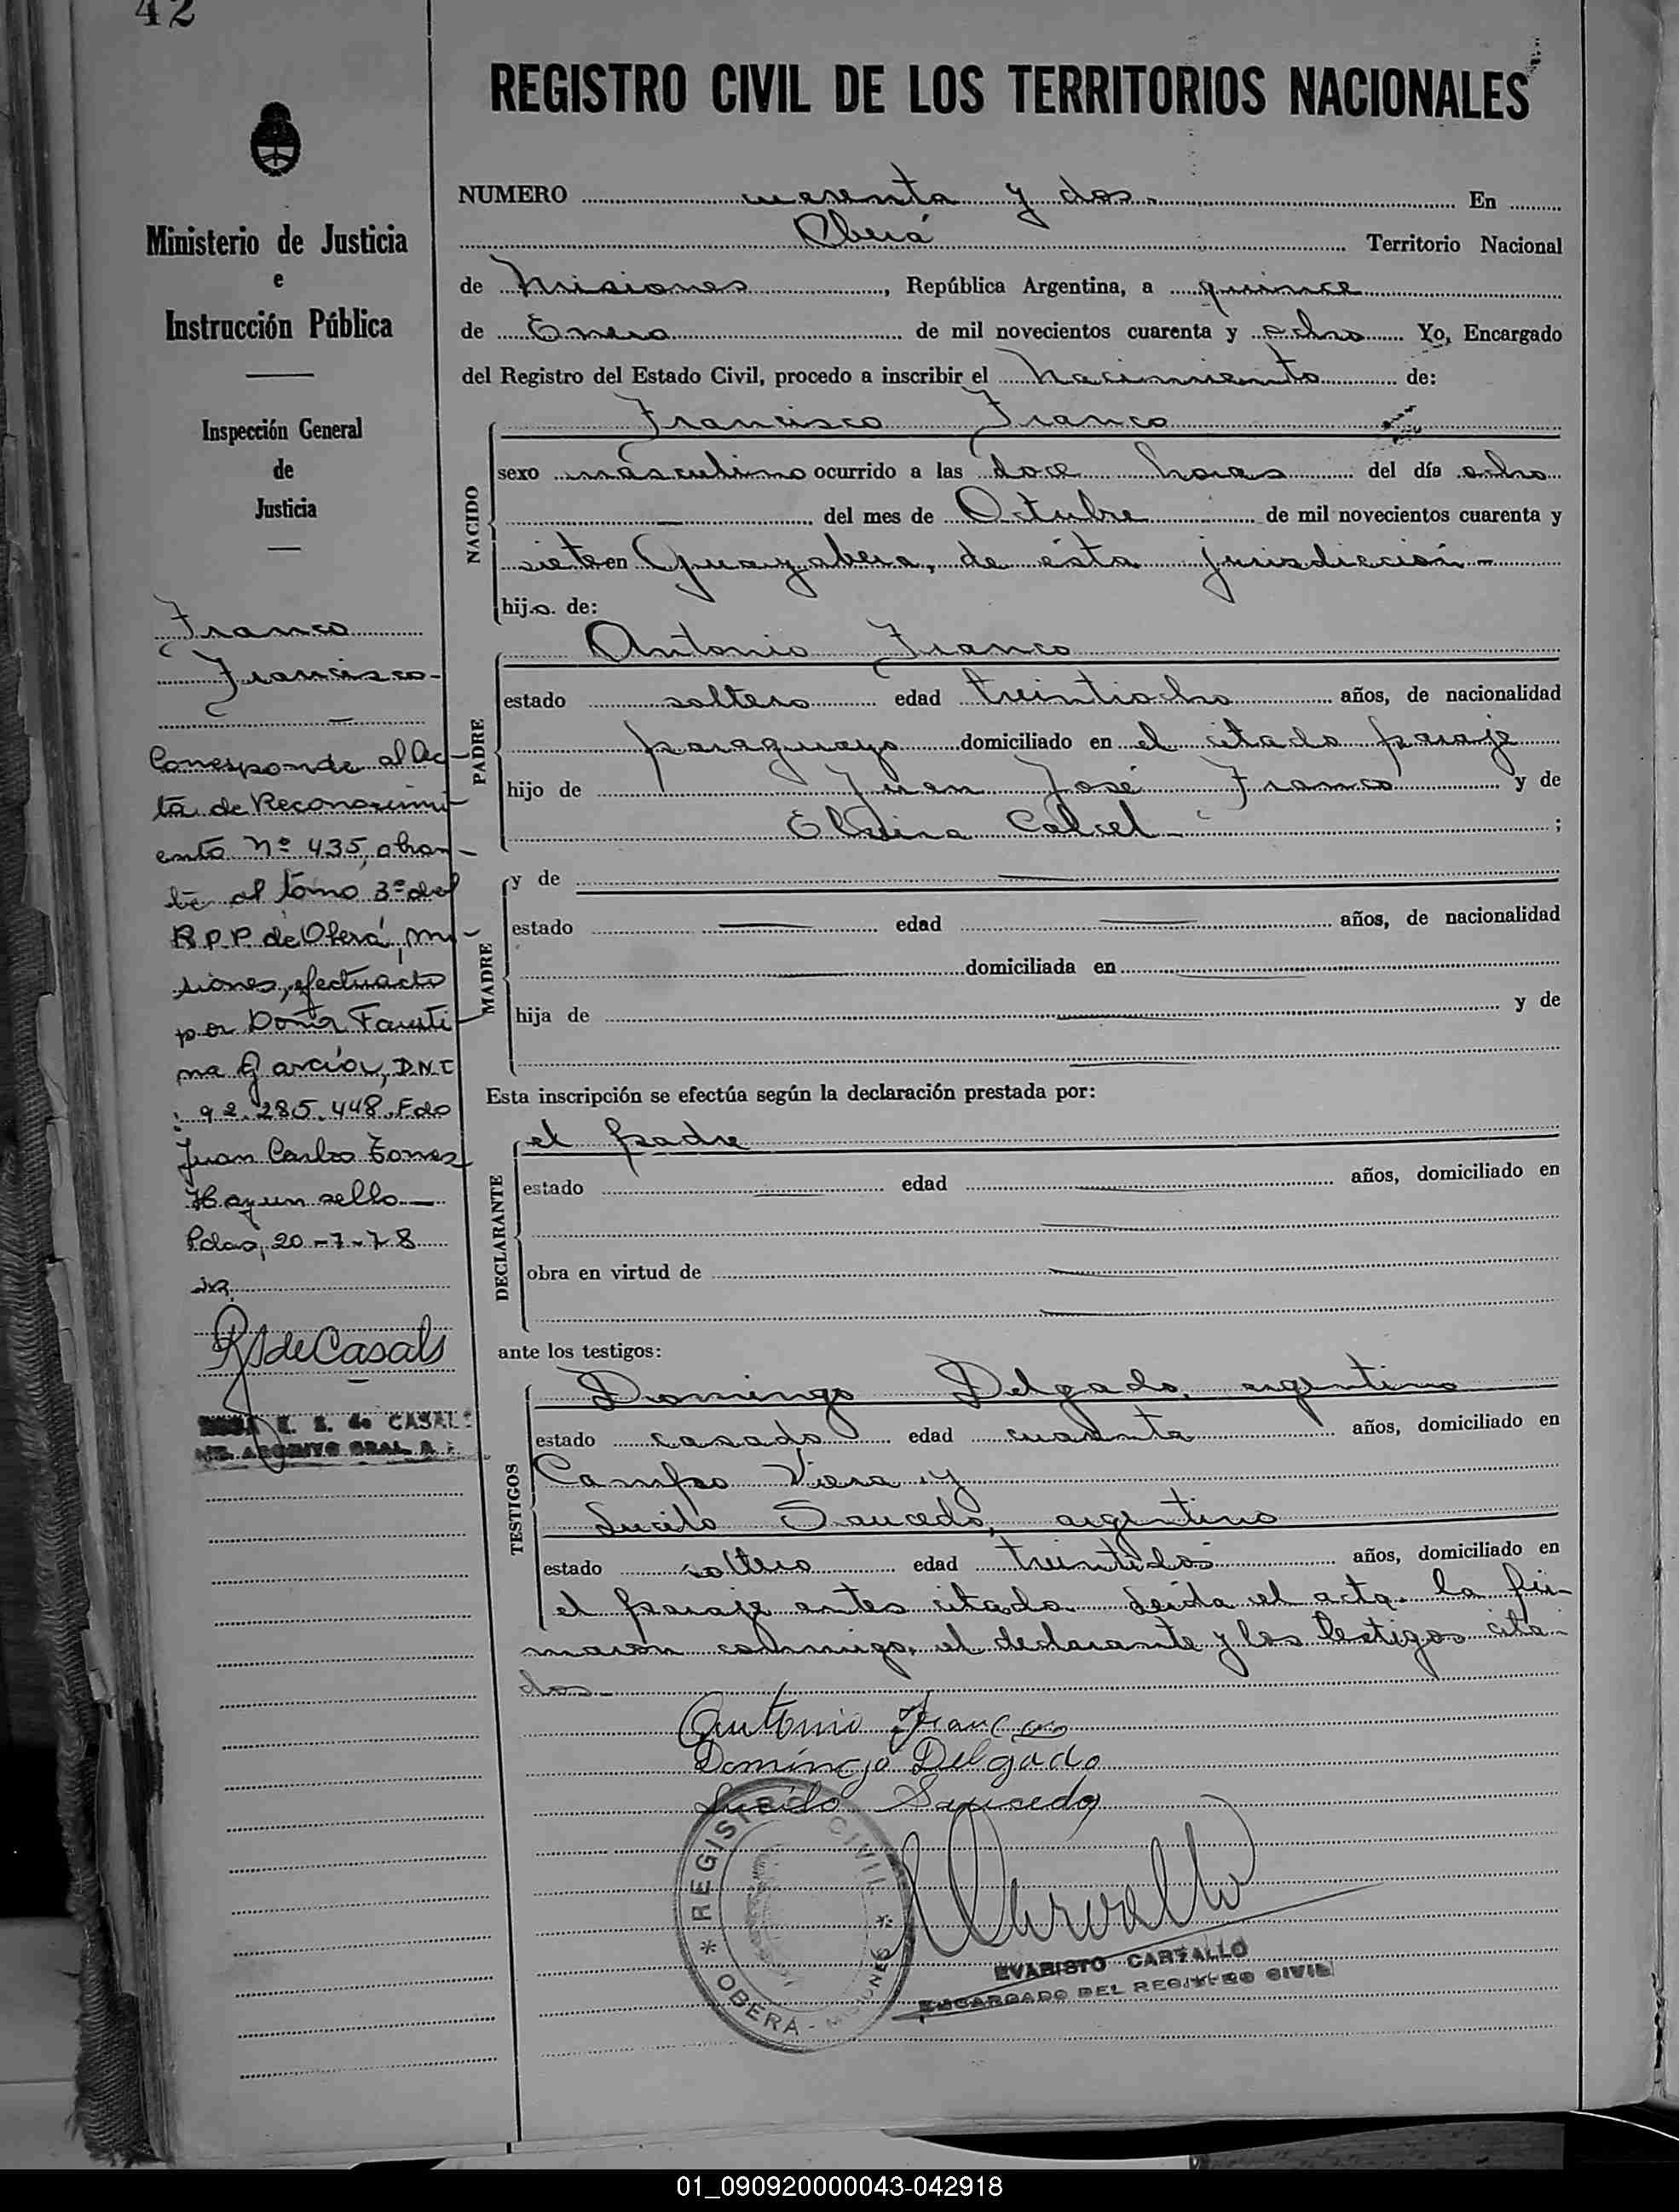 42
REGISTRO CIVIL DE LOS TERRITORIOS NACIONALES
Ministerio de Justicia
e
Instrucción Pública
Inspección General
de
Justicia
Franco
Francisco-
Corresponde al Ac-
ta de Reconocimi-
ento Nº 435, obran-
te al tomo 3º del
R.P.P. de Oberá, Mi-
siones, efectuado
por Doña Fausti-
na Garcia, D.N.I
: 92.285.448. Fdo
Juan Carlos Torres
Hay un sello
Pdas, 20-7-78
RSdeCasals
E. S. de CASALS
ARCHIVO GRAL.
NUMERO cuarenta y dos.- En
Oberá Territorio Nacional
de Misiones, República Argentina, a quince
de Enero de mil novecientos cuarenta y ocho Yo, Encargado
del Registro del Estado Civil, procedo a inscribir el Nacimiento de:
NACIDO
Francisco Franco
sexo masculino ocurrido a las doce horas del día ocho
del mes de Octubre de mil novecientos cuarenta y
siete en Guayabera, de ésta jurisdiccion -
hijo de:
PADRE
Antonio Franco
estado soltero edad treintiocho años, de nacionalidad
paraguayo domiciliado en el citado paraje
hijo de Juan José Franco y de
;
MADRE
y de
estado edad años, de nacionalidad
domiciliada en
hija de y de
Esta inscripción se efectúa según la declaración prestada por:
DECLARANTE
el padre
estado edad años, domiciliado en
obra en virtud de
ante los testigos:
TESTIGOS
Domingo Delgado, argentino
estado casado edad cuarenta años, domiciliado en
Campo Viera y
Lucilo Saucedo, argentino
estado soltero edad treintidos años, domiciliado en
el paraje antes citado. Leida el acta. la fir-
maron conmigo, el declarante y los testigos cita-
dos-
Antonio Franco
Domingo Delgado
Saucedo
REGISTRO CIVIL * OBERA - MISIONES *
EVARISTO CARVALLO
ENCARGADO DEL REGISTRO CIVIL
01_090920000043-042918